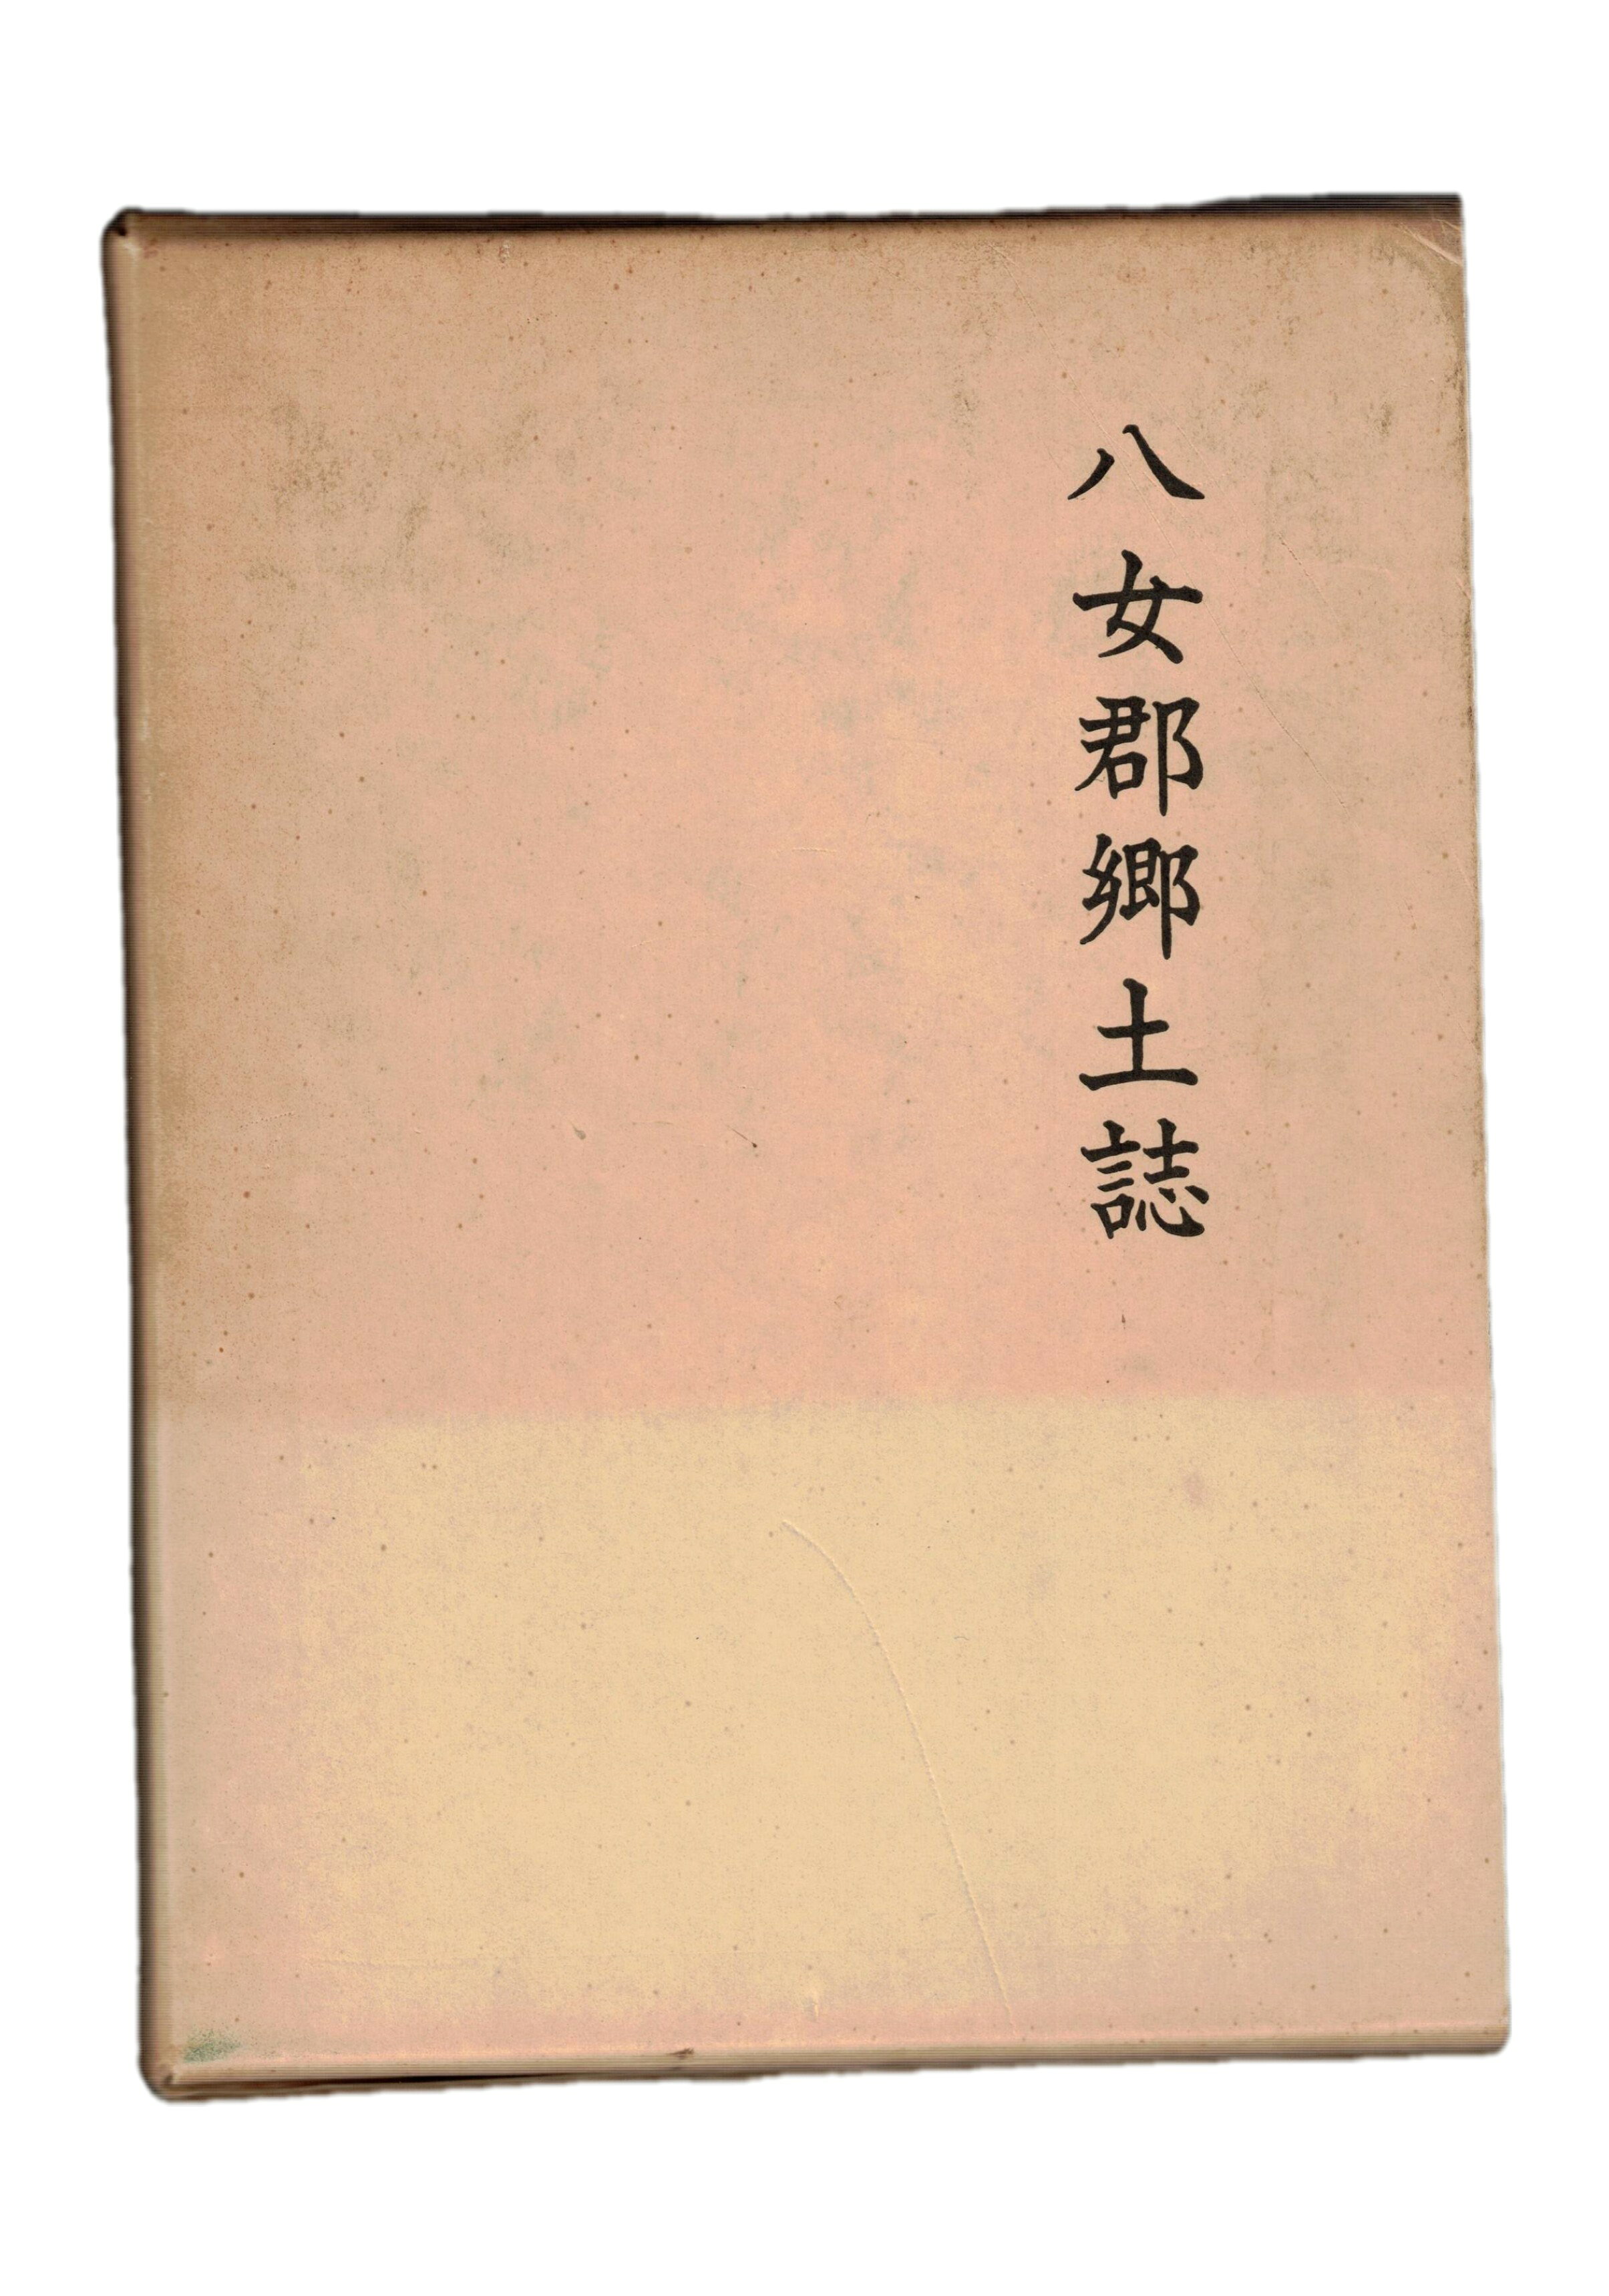 八女郡郷土誌